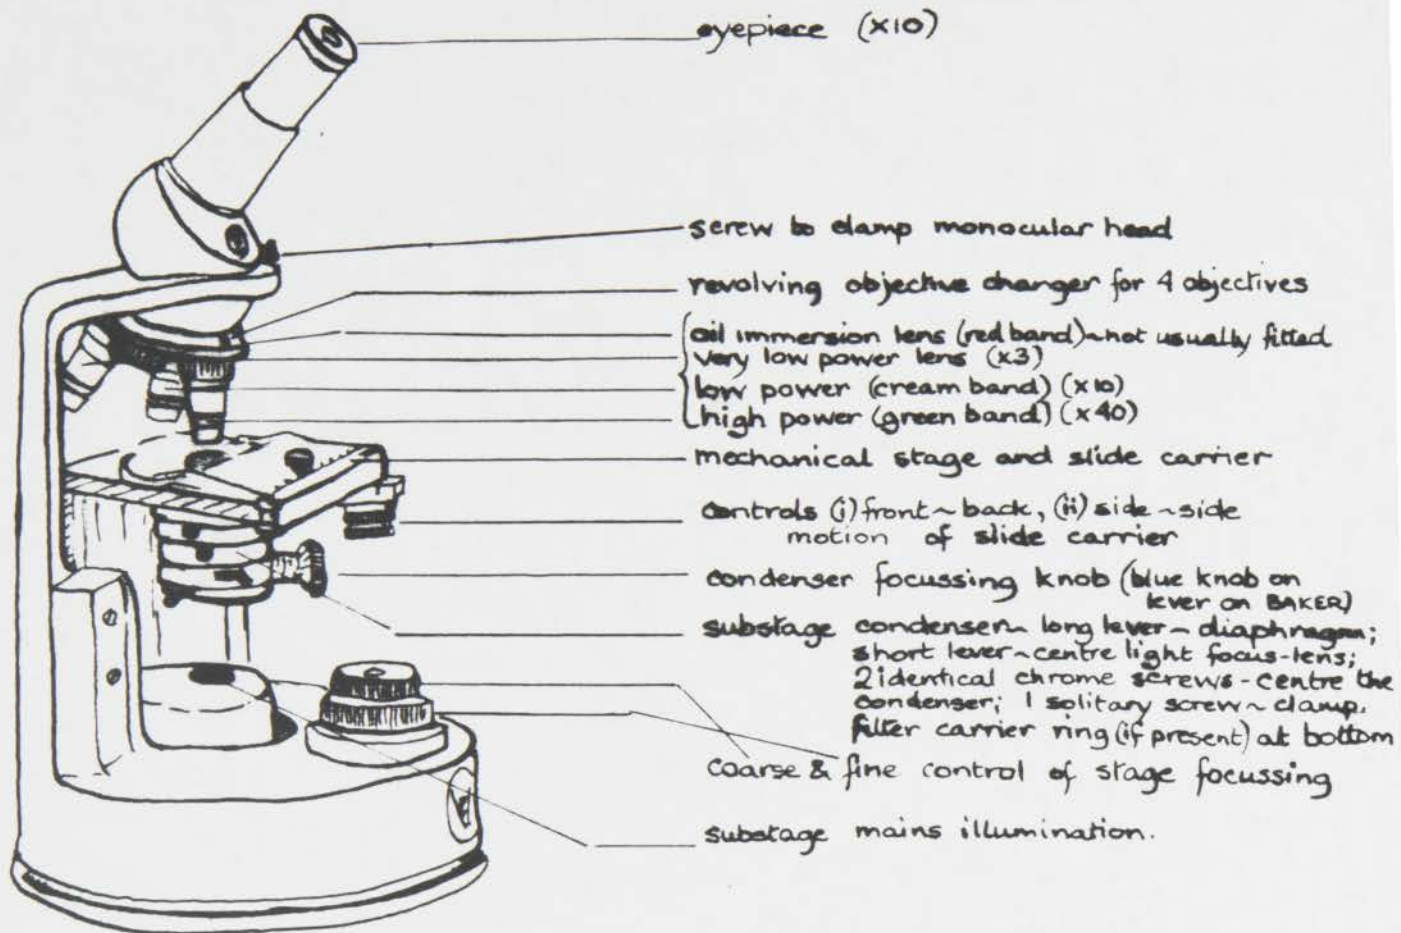 eyepiece (x10)
screw to clamp monocular head
revolving objective changer for 4 objectives
oil immersion lens (red band)~not usually fitted
very low power lens (x3)
low power (cream band) (x10)
high power (green band) (x40)
mechanical stage and slide carrier
controls (i) front~back, (ii) side~side
motion of slide carrier
condenser focussing knob (blue knob on
lever on BAKER)
substage condenser~ long lever~diaphragm;
short lever~centre light focus-lens;
2 identical chrome screws-centre the
condenser; 1 solitary screw~clamp.
filter carrier ring (if present) at bottom
coarse & fine control of stage focussing
substage mains illumination.